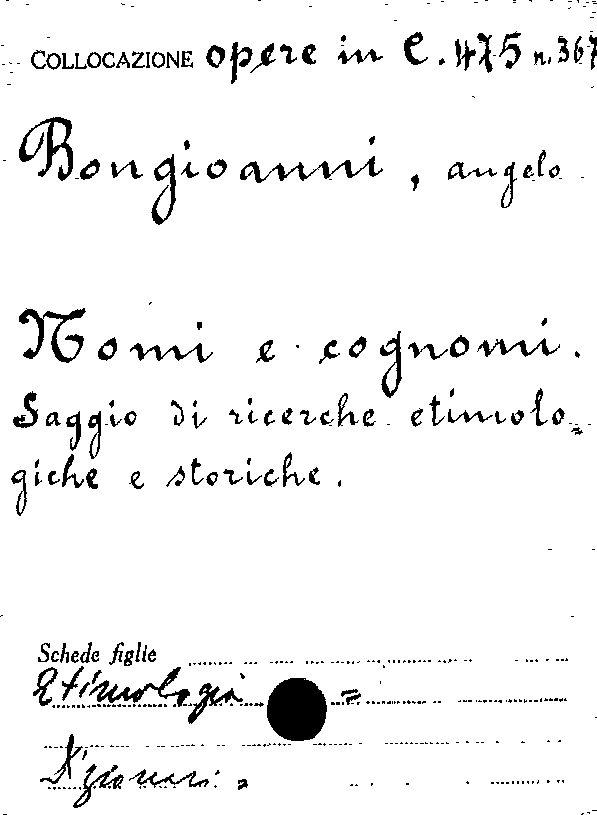 COLLOCAZIONE opere in C. 475 n. 367
Bongioanni, angelo
Nomi e cognomi.
Saggio di ricerche etimolo=
giche e storiche.
Schede figlie
Etimologia =
Dizionari =